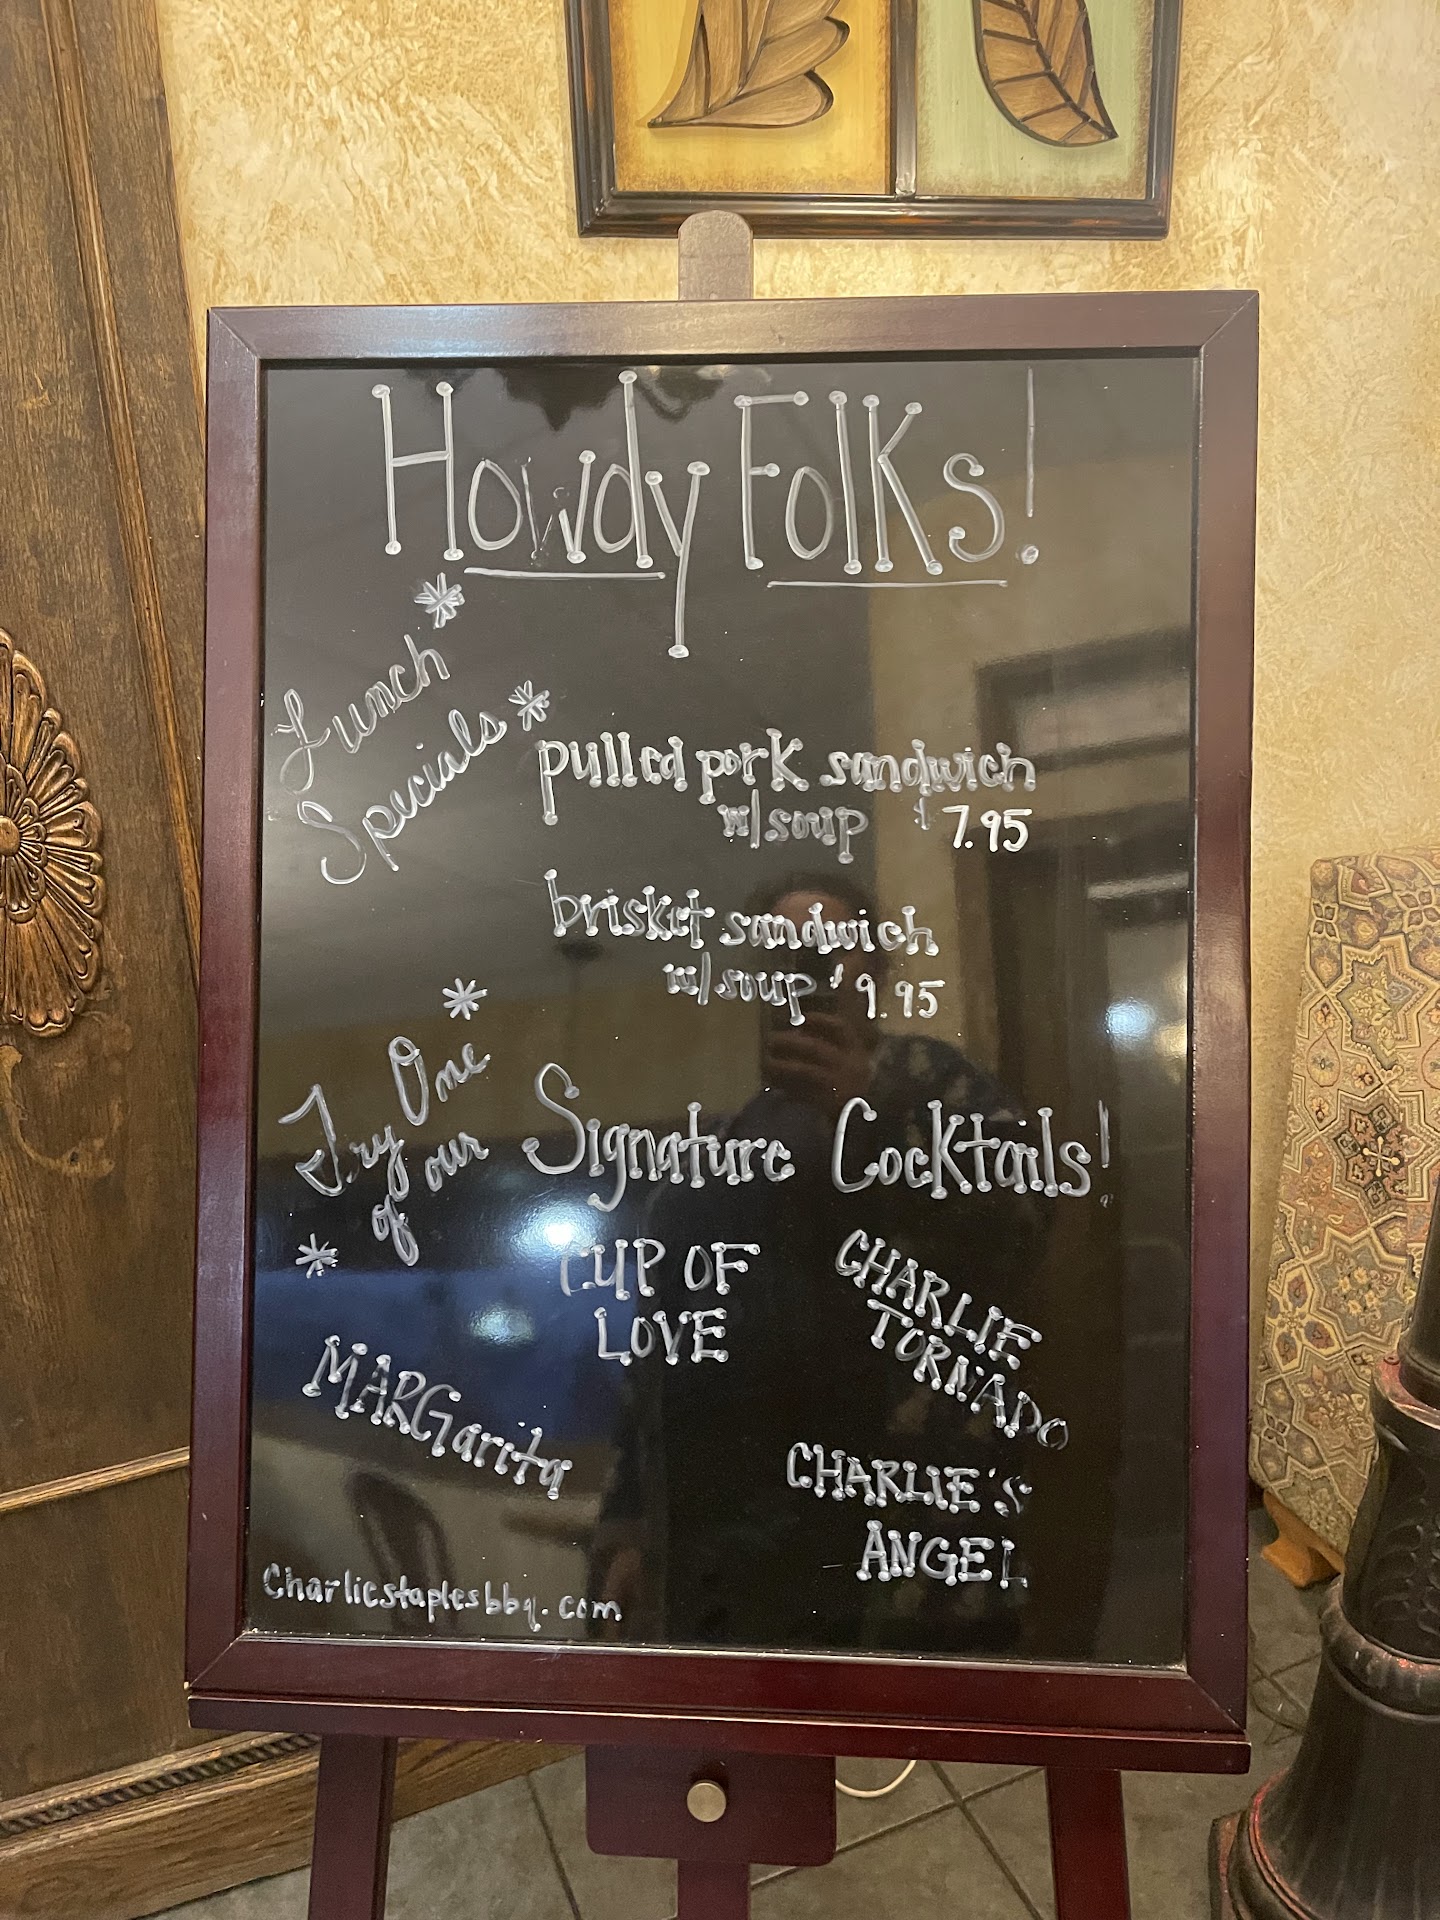 Howdy Folks!
* Lunch
Specials *
pulled pork sandwich
w/soup $7.95
brisket sandwich
w/soup $9.95
* Try One
of our *
Signature Cocktails!
CUP OF
LOVE
CHARLIE
TORNADO
MARGarita
CHARLIE'S
ANGEL
Charliestaplesbbq.com